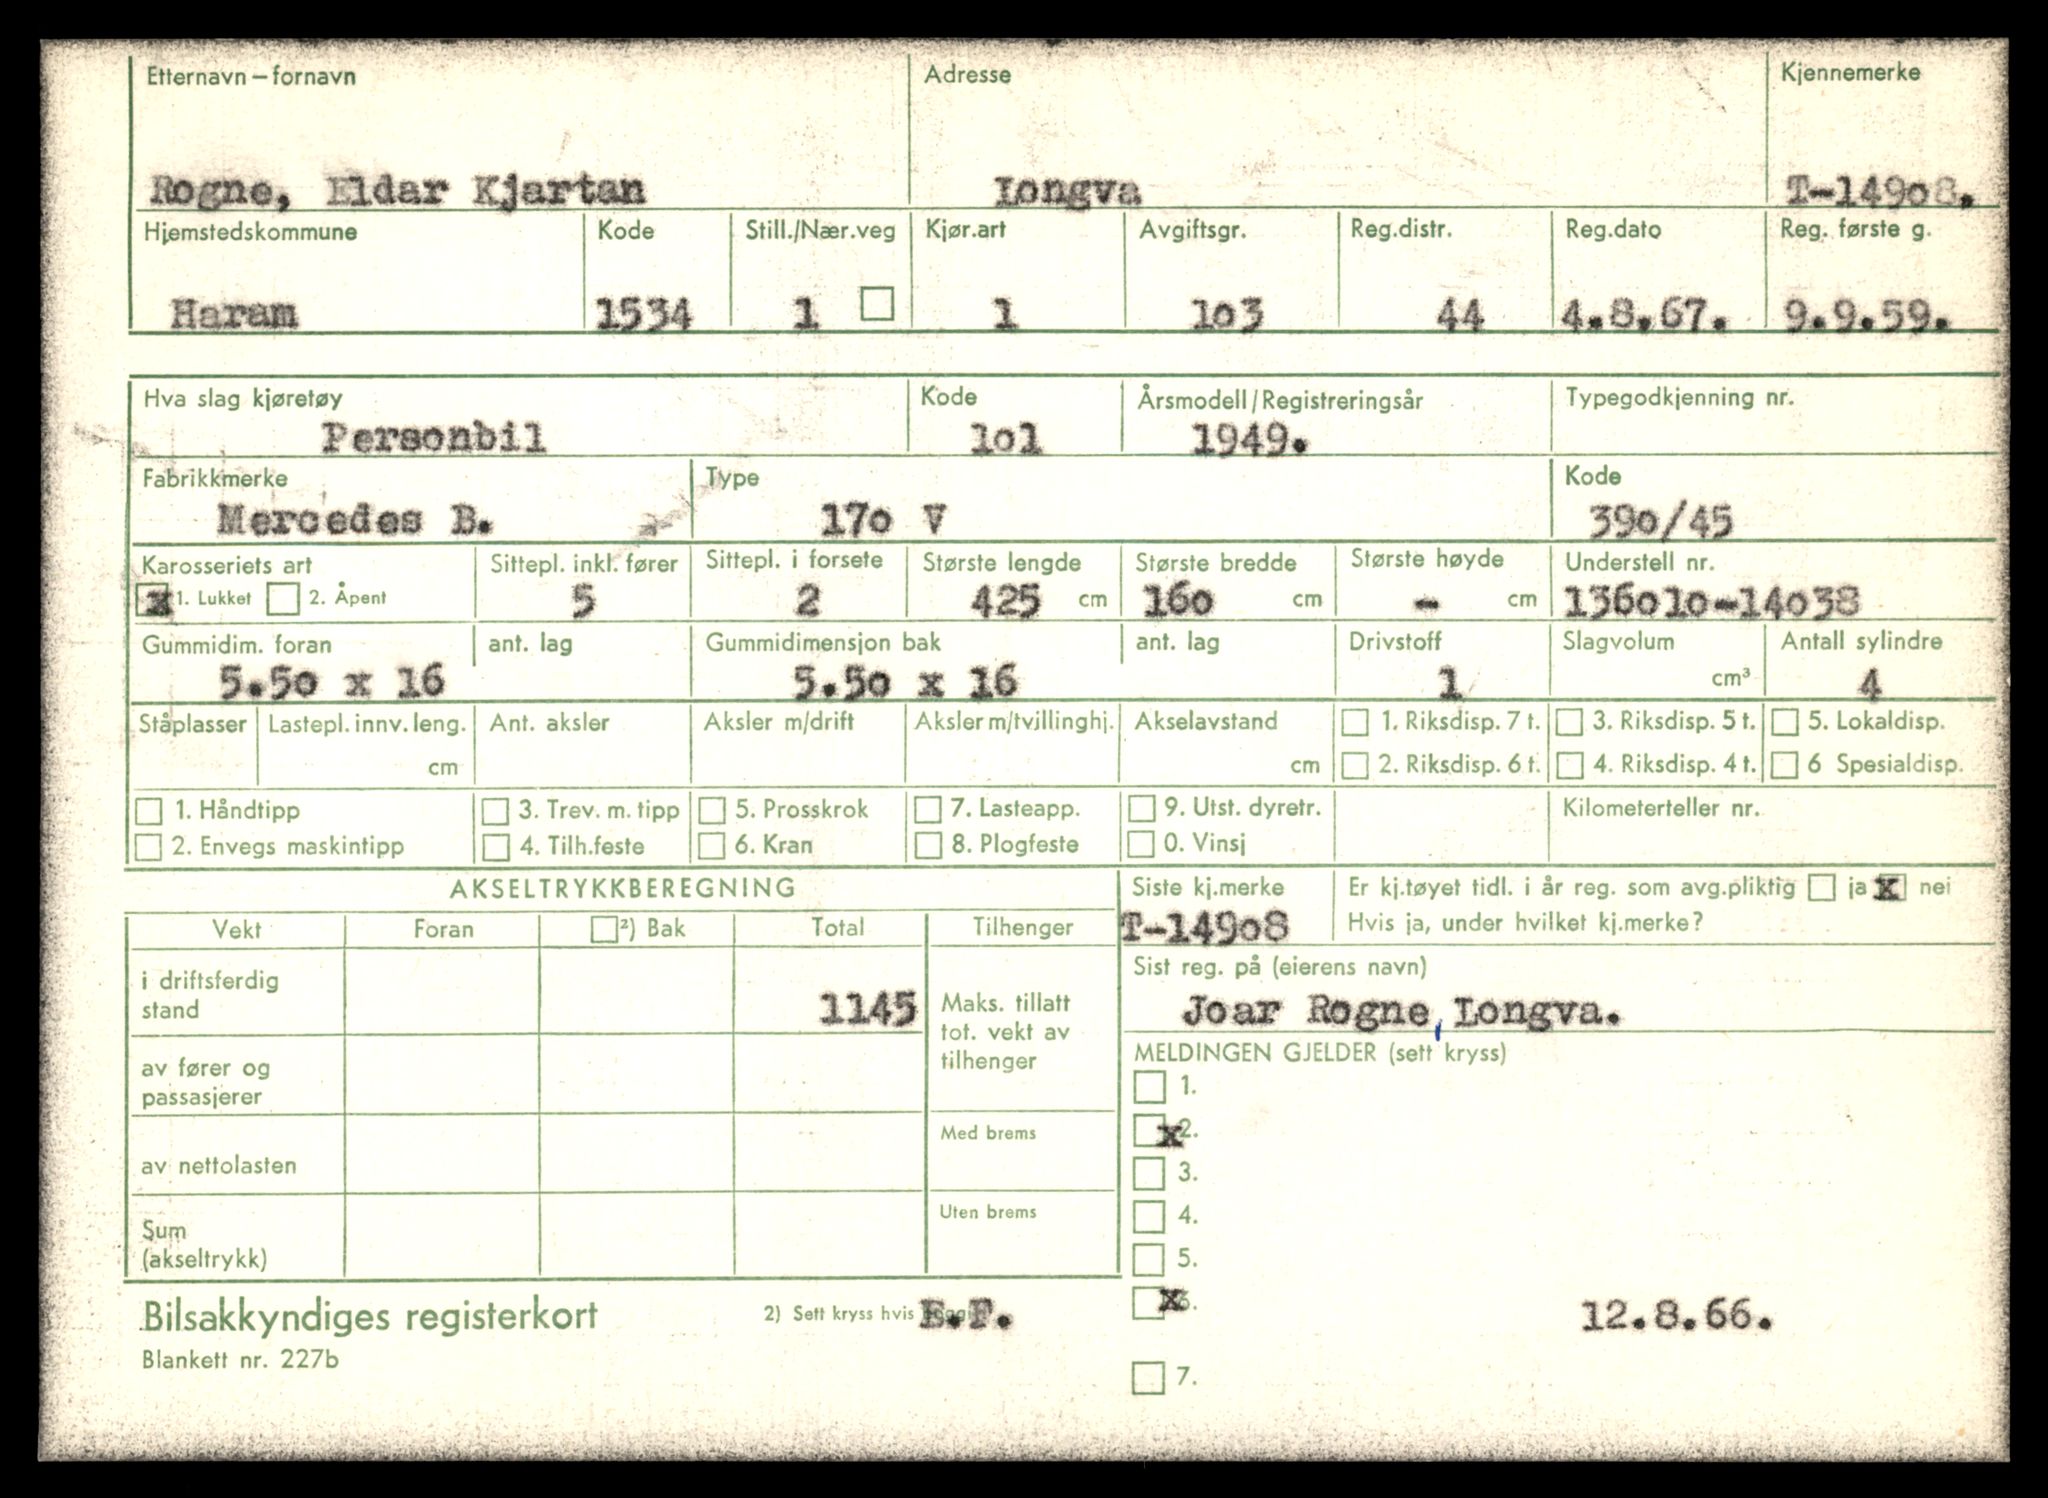 Etternavn – fornavn Adresse Kjennemerke
Rogne, Eldar Kjartan Longva T-14908.
Hjemstedskommune Kode Still./Nær.veg Kjør.art Avgiftsgr. Reg.distr. Reg.dato Reg. første g.
Haram 1534 1 1 103 44 4.8.67. 9.9.59.
Hva slag kjøretøy Kode Årsmodell/Registreringsår Typegodkjenning nr.
Personbil 101 1949.
Fabrikkmerke Type Kode
Mercedes B. 170 V 390/45
Karosseriets art Sittepl. inkl. fører Sittepl. i forsete Største lengde Største bredde Største høyde Understell nr.
x 1. Lukket 2. Åpent 5 2 425 cm 160 cm - cm 136010-14038
Gummidim. foran ant. lag Gummidimensjon bak ant. lag Drivstoff Slagvolum Antall sylindre
5.50 x 16 5.50 x 16 1 cm³ 4
Ståplasser Lastepl. innv. leng. Ant. aksler Aksler m/drift Aksler m/tvillinghj. Akselavstand 1. Riksdisp. 7 t. 3. Riksdisp. 5 t. 5. Lokaldisp.
cm cm 2. Riksdisp. 6 t. 4. Riksdisp. 4 t. 6 Spesialdisp.
1. Håndtipp 3. Trev. m. tipp 5. Prosskrok 7. Lasteapp. 9. Utst. dyretr. Kilometerteller nr.
2. Envegs maskintipp 4. Tilh.feste 6. Kran 8. Plogfeste 0. Vinsj
AKSELTRYKKBEREGNING Siste kj.merke Er kj.tøyet tidl. i år reg. som avg.pliktig ja x nei
Vekt Foran ²) Bak Total Tilhenger T-14908 Hvis ja, under hvilket kj.merke?
Sist reg. på (eierens navn)
i driftsferdig
stand 1145 Maks. tillatt Joar Rogne, Longva.
tot. vekt av
tilhenger MELDINGEN GJELDER (sett kryss)
av fører og
passasjerer 1.
Med brems x 2.
av nettolasten 3.
Uten brems 4.
Sum
(akseltrykk) 5.
Bilsakkyndiges registerkort 2) Sett kryss hvis E.F. x 6. 12.8.66.
Blankett nr. 227b
7.